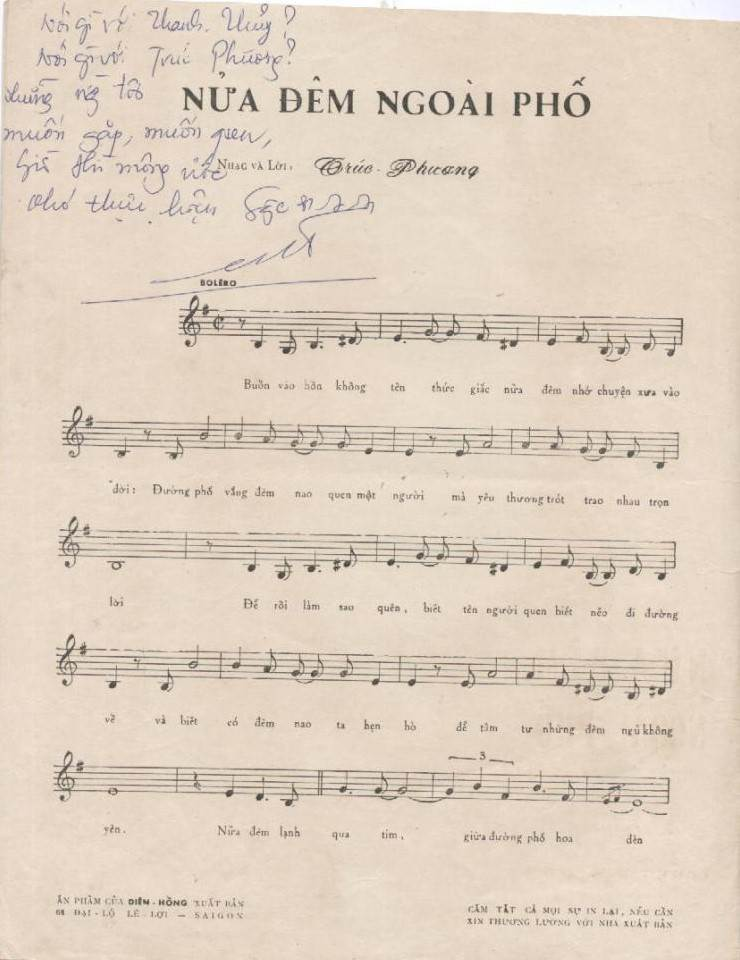 Nói gì với Thanh Thúy?
Nói gì với Trúc Phương?
muốn gặp, muốn quen,
NỬA ĐÊM NGOÀI PHỐ
NHẠC VÀ LỜI: Trúc-Phương
BOLÉRO
Buồn vào hồn không tên thức giấc nửa đêm nhớ chuyện xưa vào
đời: Đường phố vắng đêm nao quen một người mà yêu thương trót trao nhau trọn
lời Để rồi làm sao quên, biết tên người quen biết nẻo đi đường
về và biết có đêm nao ta hẹn hò để tâm tư những đêm ngủ không
3
yên. Nửa đêm lạnh qua tim, giữa đường phố hoa đèn
ẤN PHẨM CỦA DIÊN-HỒNG XUẤT BẢN
68 ĐẠI-LỘ LÊ-LỢI — SAIGON
CẤM TẤT CẢ MỌI SỰ IN LẠI, NẾU CẦN
XIN THƯƠNG LƯỢNG VỚI NHÀ XUẤT BẢN